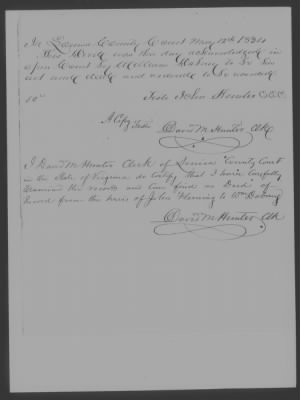 In Louisa County Court May 12th 1834
This Deed was this day acknowledged in
open Court by William Dabney to be his
act and deed and ordered to be recorded
Teste John Hunter C.L.C.
A Copy Teste
David M Hunter Clk
I David M Hunter Clerk of Louisa County Court
in the State of Virginia do certify that I have carefully
examined the records and can find no Deed of
record from the heirs of John Fleming to Wm Dabney
David M Hunter Clk